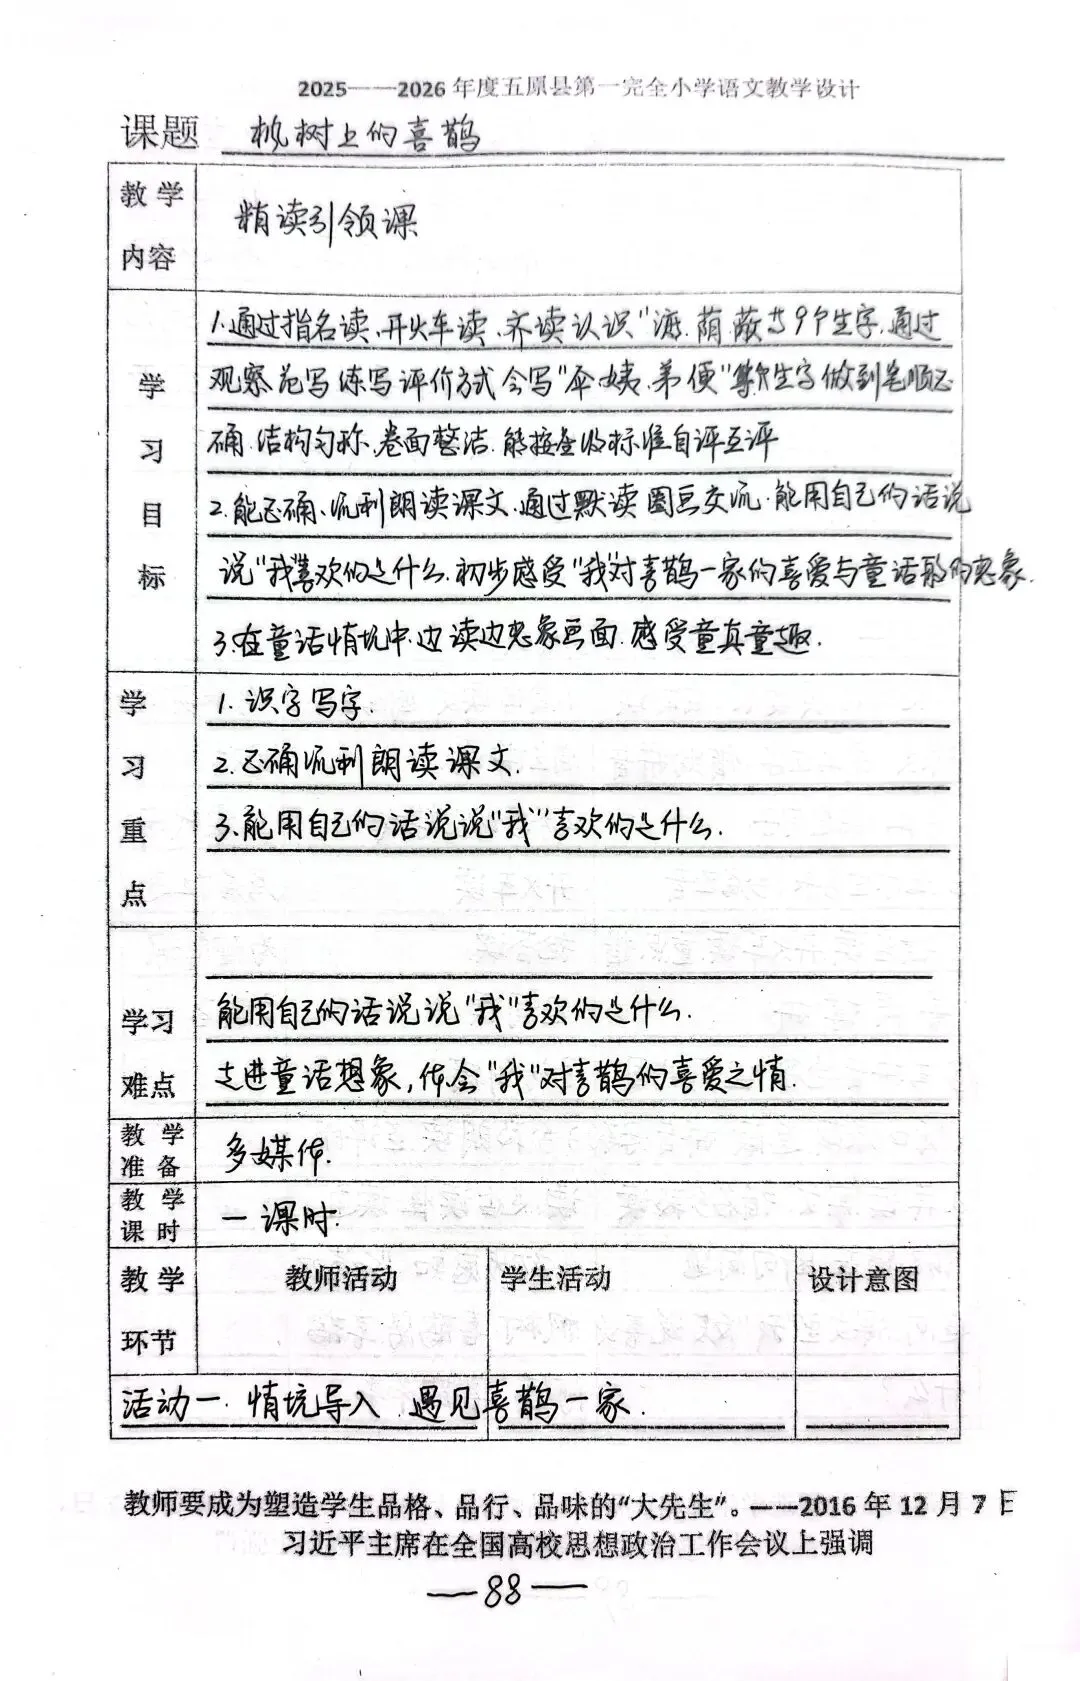 2025——2026年度五原县第一完全小学语文教学设计
课题 枫树上的喜鹊
教学内容 精读引领课
学习目标
1.通过指名读、开火车读、齐读认识"渡、荫、蔽"等9个生字.通过
观察范写练写评价方式会写"伞姨、弟便"等生字做到笔顺正
确.结构匀称、卷面整洁.能按星级标准自评互评
2.能正确、流利朗读课文.通过默读圈画交流.能用自己的话说
说"我"喜欢的是什么.初步感受"我"对喜鹊一家的喜爱与童话般的想象.
3.在童话情境中.边读边想象画面.感受童真童趣.
学习重点
1.识字写字.
2.正确流利朗读课文.
3.能用自己的话说说"我"喜欢的是什么.
学习难点
能用自己的话说说"我"喜欢的是什么.
走进童话想象,体会"我"对喜鹊的喜爱之情.
教学准备 多媒体.
教学课时 一课时.
教学环节 教师活动 学生活动 设计意图
活动一.情境导入 遇见喜鹊一家.
教师要成为塑造学生品格、品行、品味的“大先生”。——2016年12月7日
习近平主席在全国高校思想政治工作会议上强调
—88—